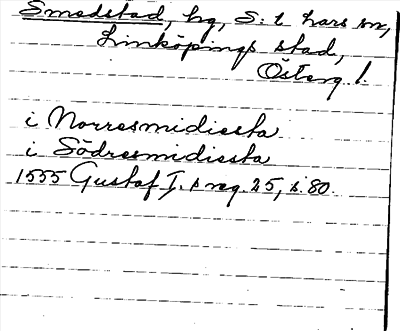 Smedstad, hg, S:t Lars sn,
Linköpings stad,
Österg. l.
i Norresmidiesta
i Södresmidiesta
1555 Gustaf I.s reg. 25, s. 80.